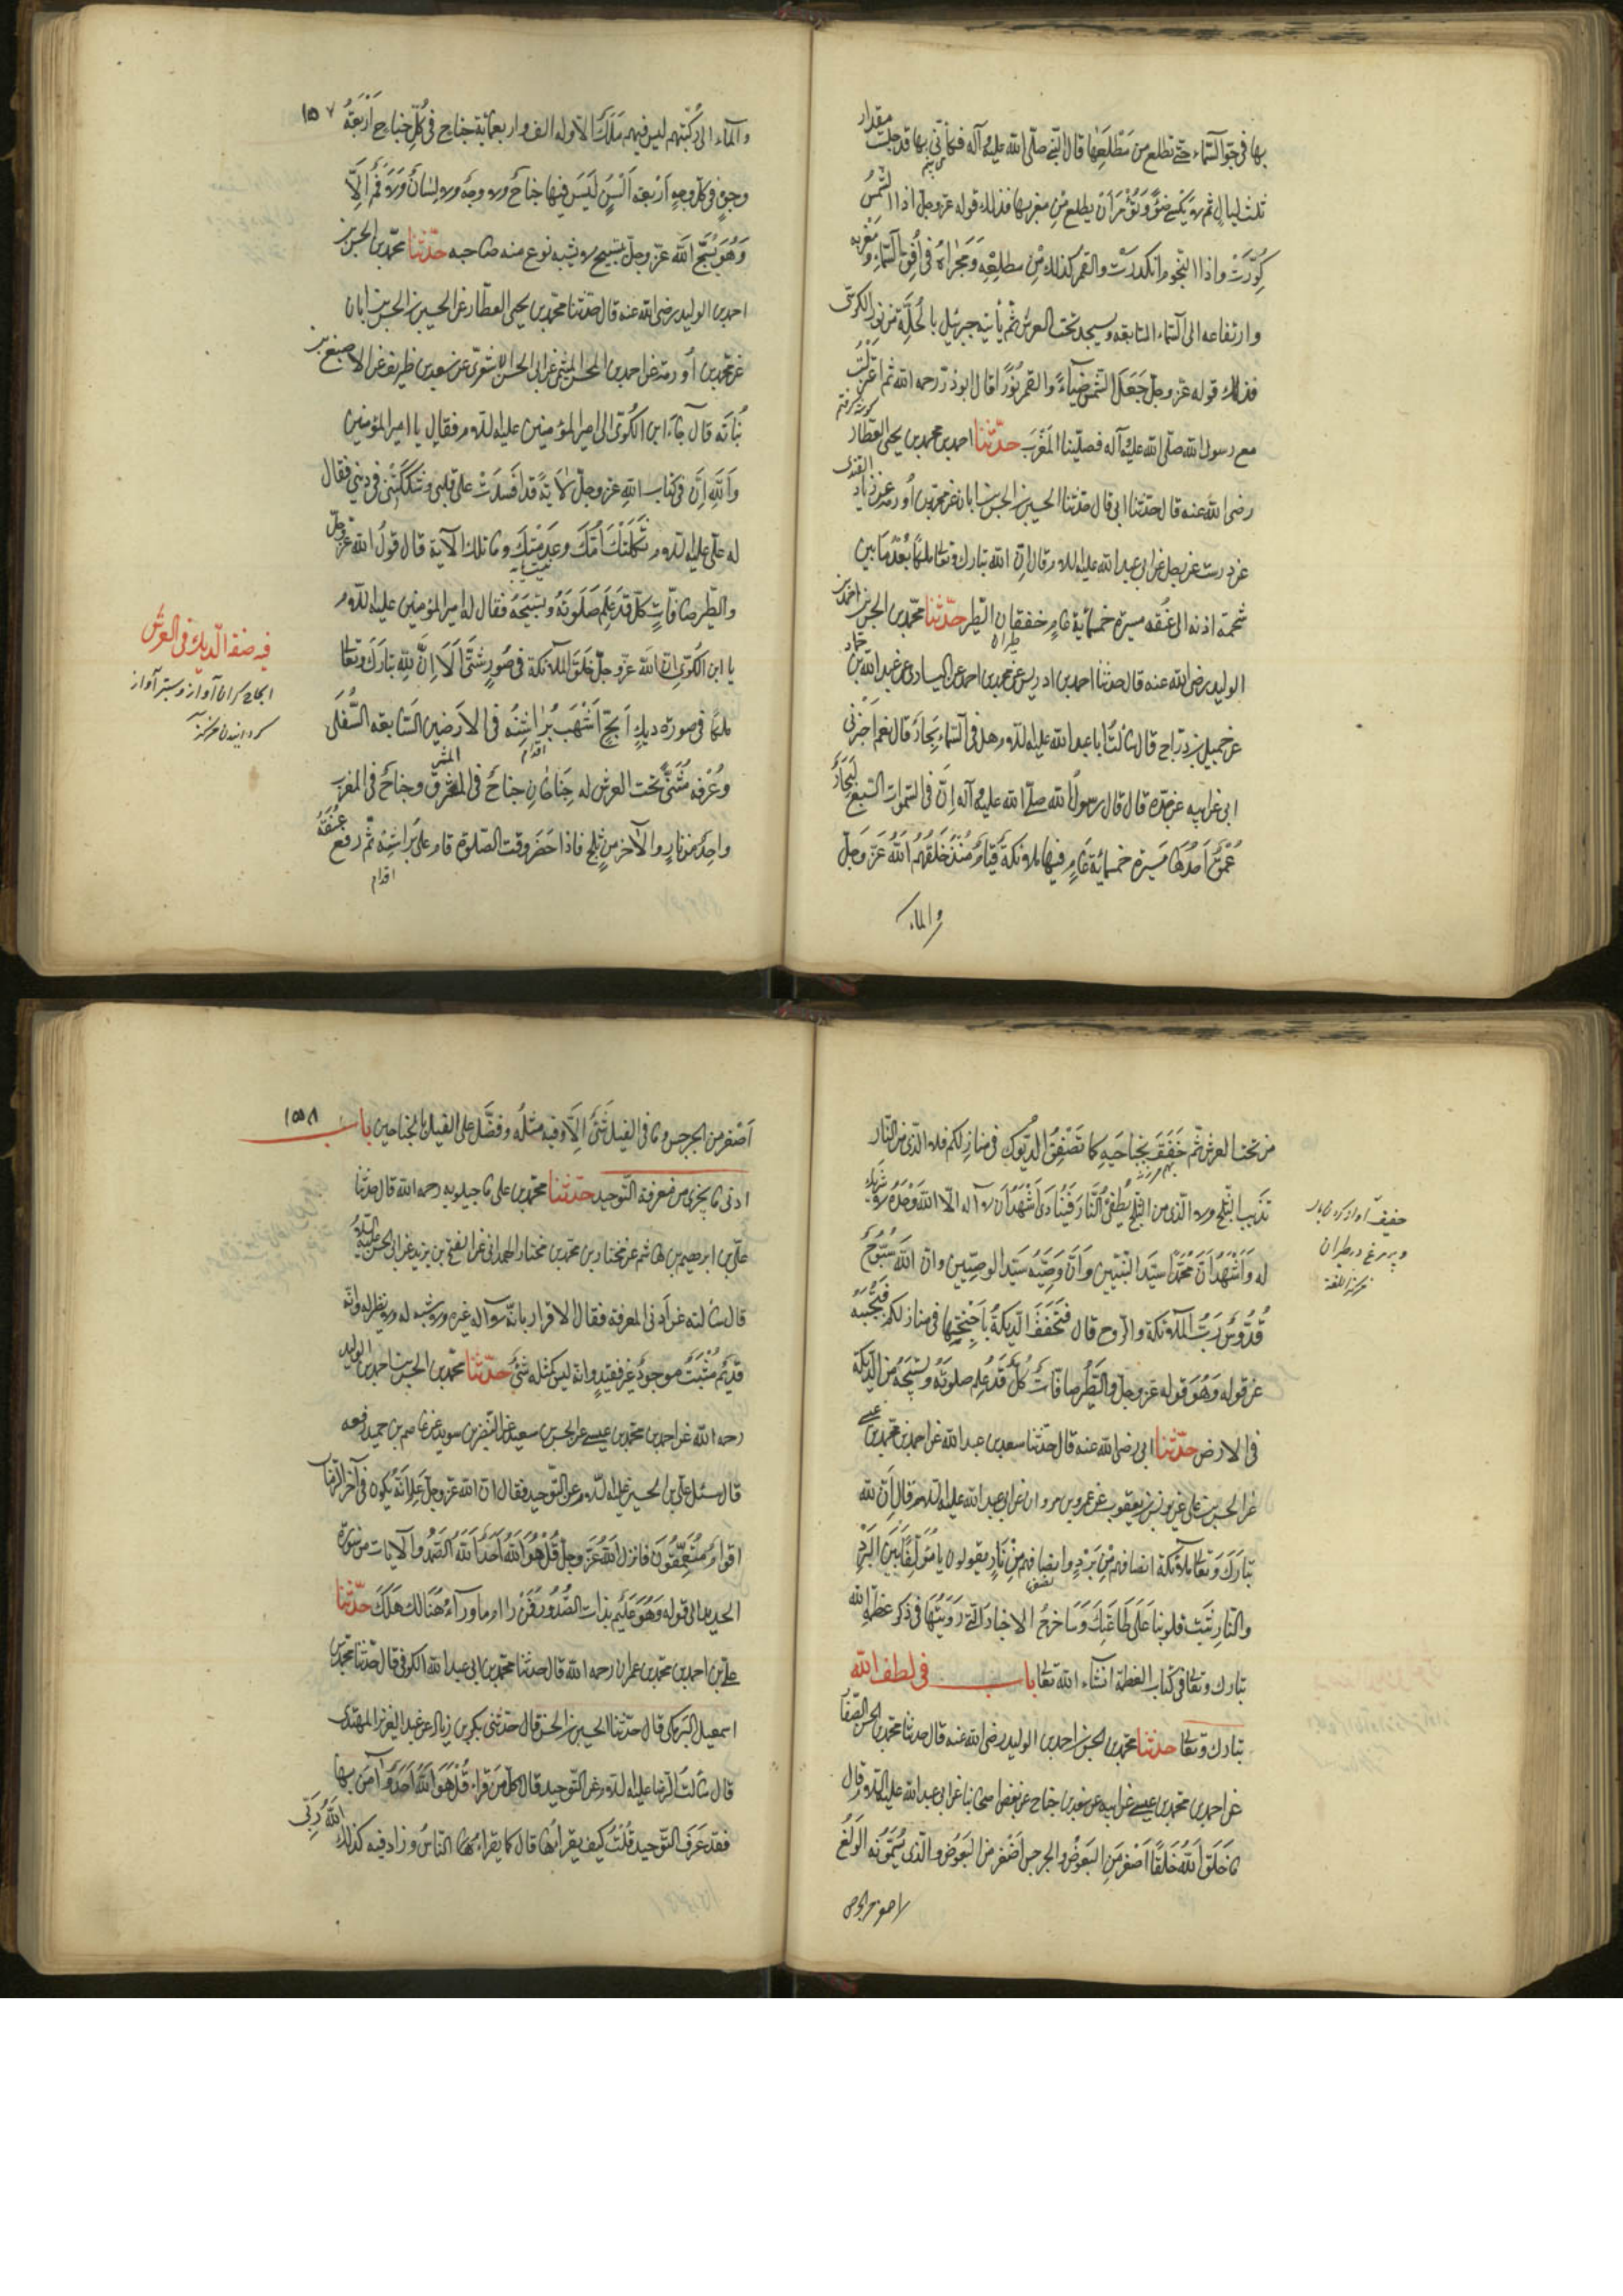 بها فی جوّ السّماء حتّی تطلع من مَطْلَعِها قال النّبیّ صلّی الله علیه و آله فکأنّی بها قد حبست مقدار
ثلث لیالٍ ثم لا تُکْسی ضَوْءً وتُؤْمَرُ اَنْ تطلع مِنْ مغربها فذلک قوله عزّ وجلّ اذا الشّمسُ
کُوِّرَتْ واذا النّجُوم انْکَدَرَتْ والقمر کذلک مِنْ مطلعِهِ وَمَجْراهُ فی اُفُقِ السّماء وَمَغْرِبه
وارتفاعه الی السّماء السّابعه ویسجد تحت العرش ثمّ یأتیه جبرئیل بالحُلّة من نور الکرسی
فذلک قوله عزّ وجلّ جَعَلَ الشّمسَ ضیاءً والقمر نُوراً قال ابوذرّ رحمه الله ثم اعتزلتُ
مع رسول الله صلّی الله علیه و آله فصلّینا المَغْرِبَ حدّثنا احمد بن محمد بن یحیی العطّار
رضی الله عنه قال حدّثنا ابی قال حدّثنا الحسین بن الحسن بن ابان عن محمّد بن اُورمه عن زیاد القندی
عن درست عن رجل عن ابی عبد الله علیه السلام قال انّ لله تبارک وتعالی ملکاً بُعْدُ ما بین
شحمة اذنه الی عُنُقه مسیرة خمسمائة عامٍ خفقان الطّیر حدّثنا محمّد بن الحسن بن احمد بن
الولید رضی الله عنه قال حدثنا احمد بن ادریس عن محمد بن احمد عن السیاری عن عبد الله بن حماد
عن جمیل بن درّاج قال سألتُ ابا عبد الله علیه السلام هل فی السّماء بِحارٌ قال نعم اَخْبَرَنی
ابی عن ابیه عن جدّه قال قال رسولُ الله صلّی الله علیه و آله اِنّ فی السّموات السّبع لَبِحاراً
عُمْقُ اَحَدِها مَسیرة خمسمائة عامٍ فیها ملائکة قیامٌ مُنْذُ خَلَقَهُم اللهُ عزّ وجلّ
والماء
۱۵۷
والماء الی رُکَبِهِم لیس فیهم مَلَکٌ الّا وله الف واربعمائة جناح فی کُلِّ جناحٍ اَرْبَعَةُ
وجوهٍ فی کلّ وجهٍ اَرْبعة اَلْسُنٍ لَیْسَ فیها جناحٌ ولا وجهٌ ولا لسانٌ وَلا فَمٌ اِلّا
وَهُوَ یُسَبِّحُ الله عزّ وجلّ بتسبیح لا یشبه نوع منه صاحبه حدّثنا محمّد بن الحسن بن
احمد بن الولید رضی الله عنه قال حدّثنا محمّد بن یحیی العطّار عن الحسین بن الحسن بن ابان
عن محمّد بن اُورمه عن احمد بن الحسن المیثمی عن ابی الحسن الشعیری عن سعد بن طریف عن الاصبغ بن
نُباته قال جاء ابن الکوّا الی امیر المؤمنین علیه السلام فقال یا امیر المؤمنین
وَالله اِنّ فی کتاب الله عزّ وجلّ لآیةً قد اَفْسَدَتْ علی قلبی وشکّکَتْنی فی دینی فقال
له علیّ علیه السلام ثَکَلَتْکَ اُمُّکَ وعَدِمَتْکَ وما تلک الآیة قال قولُ الله عزّ وجلّ
والطّیر صافّاتٍ کلٌّ قَدْ عَلِمَ صَلوتَهُ وتسبیحَهُ فقال له امیر المؤمنین علیه السلام
یا ابن الکوّا اِنّ الله عزّ وجلّ خَلَقَ الملائکة فی صُوَرٍ شَتّی اَلا اِنّ لله تبارک وتعالی
ملکاً فی صورة دیکٍ اَبَحَّ اَشْهَبَ بُراثِنُه فی الارَضین السّابعه السُّفْلی
اقدام
وعُرْفه مَثْنیٌّ تحت العرش له جَناحانِ جناحٌ فی المشرق وجناحٌ فی المغرب
واحِدٌ من نارٍ والآخر من ثلجٍ فاذا حَضَر وقت الصّلوة قام علی بَراثِنِه ثمّ رفع عُنُقَهُ
اقدام
فیه صفة الدّیک فی العرش
من تحت العرش ثم خَفَقَ بجناحَیْهِ کما تَصْفِقُ الدّیُوک فی منازلکم فلا الّذی من النّار
تذیب الثّلج ولا الّذی من الثّلج یُطْفِیُ النّار فَیُنادی اَشْهَدُ اَن لا اله الّا الله وَحْدَهُ لا شریک
له وَاَشْهَدُ اَنّ محمّداً سیّد النّبیّین وَاَنّ وَصِیَّهُ سَیّد الوصیّین وانّ الله سُبُّوحٌ
قُدُّوسٌ رَبُّ الملائکة والرّوح قال فَتَخْفَقُ الدّیکةُ بِاَجْنِحَتِها فی منازلکم فَتُجیبُهُ
عن قوله وَهُوَ قوله عزّ وجلّ والطّیر صافّاتٍ کُلٌّ قَدْ عَلِمَ صلوته وتسبیحه من الدّیکة
فی الارض حدّثنا ابی رضی الله عنه قال حدّثنا سعد بن عبد الله عن احمد بن محمّد بن عیسی
عن الحسن بن علی عن یونس بن یعقوب عن عمرو بن مروان عن ابی عبد الله علیه السلام قال اِنّ لله
تبارَکَ وَتعالی ملائکة انصافهم مِنْ بَرَدٍ وانصافهم مِنْ نارٍ یقولون یا مُؤلّفاً بَیْنَ البَرَد
والنّار ثَبِّتْ قلوبنا عَلی طاعَتِکَ وَسَاُخرِجُ الاخبار الّتی رَوَیْتُها فی ذکر عظمة الله
تبارک وتعالی فی کتاب العظمة انشاء الله تعالی باب فی لطف الله
تبارک وتعالی حدثنا محمّد بن الحسن بن احمد بن الولید رضی الله عنه قال حدثنا محمّد بن الحسن الصفّار
عن احمد بن محمّد بن عیسی عن ابیه عن سعد بن جناح عن بعض اصحابنا عن ابی عبد الله علیه السلام قال
ما خَلَقَ اللهُ خَلْقاً اَصْغَر مِنَ البَعُوضِ والجرجس اَصْغر من البَعُوض والّذی یُسَمّونه الوَلَغ
۱۵۸
اَصْغر من الجرجس وما فی الفیل شَیْءٌ اِلّا وفیه مثلُه وفُضِّل علی الفیل بالجناحین باب
ادنی ما یجزی من معرفة التّوحید حدّثنا محمّد بن علی ماجیلویه رحمه الله قال حدثنا
علیّ بن ابرهیم بن هاشم عن مختار بن محمّد بن مختار الهمدانی عن الفتح بن یزید عن ابی الحسن علیه السلام
قال سألته عن ادنی المعرفة فقال الاقرار بانّه لا اله غیره ولا شبه له ولا نظیر له وانّه
قدیمٌ مُثْبَتٌ موجودٌ غیر فقیدٍ وانّه لیس کمثله شَیْءٌ حدّثنا محمّد بن الحسن بن احمد بن الولید
رحمه الله عن احمد بن محمّد بن عیسی عن الحسین بن سعید عن النّضر بن سوید عن عاصم بن حمید رفعه
قال سئل علیّ بن الحسین علیه السلام عن التّوحید فقال انّ الله عزّ وجلّ عَلِمَ اَنّهُ یکون فی آخر الزّمان
اقوامٌ مُتَعَمِّقُونَ فانزل الله عزّ وجلّ قُلْ هُوَ اللهُ اَحَدٌ اَللهُ الصَّمَدُ والآیات من سُورة
الحدید الی قوله وَهُوَ عَلیمٌ بذات الصُّدُور فَمَنْ رام ما وراءَ هُنالک هَلَکَ حدّثنا
علیّ بن احمد بن محمّد بن عمران رحمه الله قال حدثنا محمّد بن ابی عبد الله الکوفی قال حدّثنا محمّد بن
اسمعیل البرمکی قال حدّثنا الحسین بن الحسن قال حدّثنی بکر بن زیاد عن عبد العزیز المهتدی
قال سَألتُ الرّضا علیه السلام عن التّوحید فقال کلّ مَنْ قراء قُلْ هُوَ اللهُ اَحَدٌ وَ آمَنَ بِها
فقد عَرَفَ التّوحید قُلْتُ کیف یقرأها قال کما یقراءُها النّاسُ وزاد فیه کذلک اللهُ رَبّی